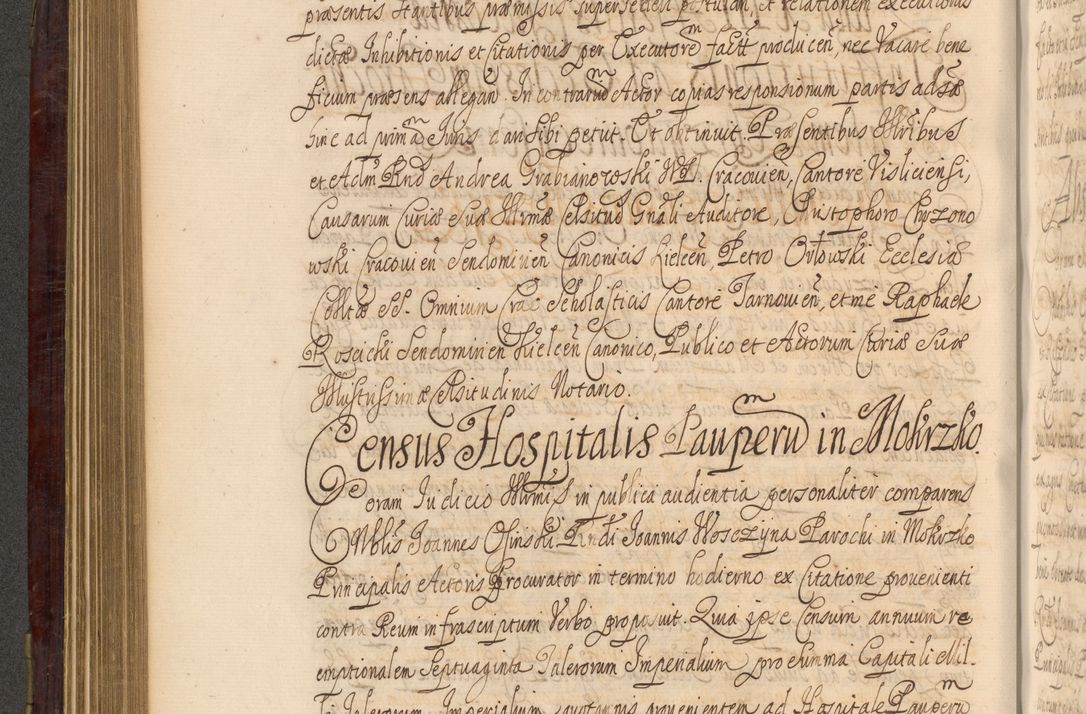 præsentis stantibus præmissis supersederi postulan, et relationem executionis
dictæ Inhibitionis et Citationis per Executorẽ factã producen, nec vacare bene
ficium præsens allegan. In contrariũ Actor copias responsionum partis adsæ
hinc ad primã Iuris dari sibi petiit. Et obtinuit. Præsentibus Illribus
et Adm Rndo Andrea Grabianowski Cracouien, Cantore Visliciensi,
Causarum Curiæ Suæ Illrmæ Celsitud Gnali Auditore, Christophoro Chrzono
wski Cracouien Sendomirien Canonicis Kielcen, Petro Orłowski Ecclesiæ
Colltæ SS. Omnium Crac Scholasticis Cantore Tarnouien, et me Raphaele
Roscicki Sendomirien Kielcen Canonico, Publico et Actorum Curiæ Suæ
Illustrissimæ Celsitudinis Notario.
Census Hospitalis Pauperũ in Mokrzko.
Coram Iudicio Illrmi S in publica audientia personaliter comparens
Nblis Ioannes Osinski Rndi Ioannis Wosczyna Parochi in Mokrzko
Principalis Actoris Procurator in termino hodierno ex Citatione prouenienti
contra Reum infrascriptum Verbo proposuit. Quia ipse Censum annuum re
emptionalem Septuaginta Talerorum Imperialium pro summa Capitali Mil-
li Talerorum Imperialium quotannis prouenientem ad Hospitale Pauperũ